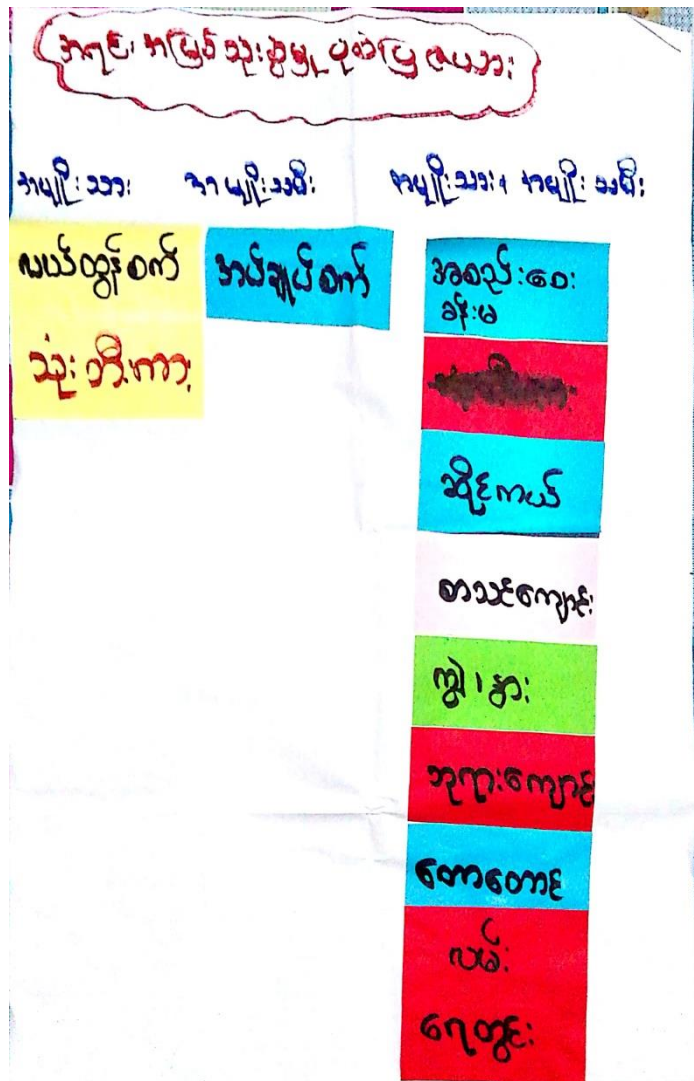 အရင်းအမြစ်သုံးစွဲမှု ပုံစံပြဇယား
အမျိုးသား
အမျိုးသမီး
အမျိုးသား၊ အမျိုးသမီး
လယ်ထွန်စက်
သုံးဘီးကား
အပ်ချုပ်စက်
အစည်းဝေး
ခန်းမ
ဆိုင်ကယ်
စာသင်ကျောင်း
ကျွဲ၊ နွား
ဘုရားကျောင်း
တောတောင်
လမ်း
ရေတွင်း